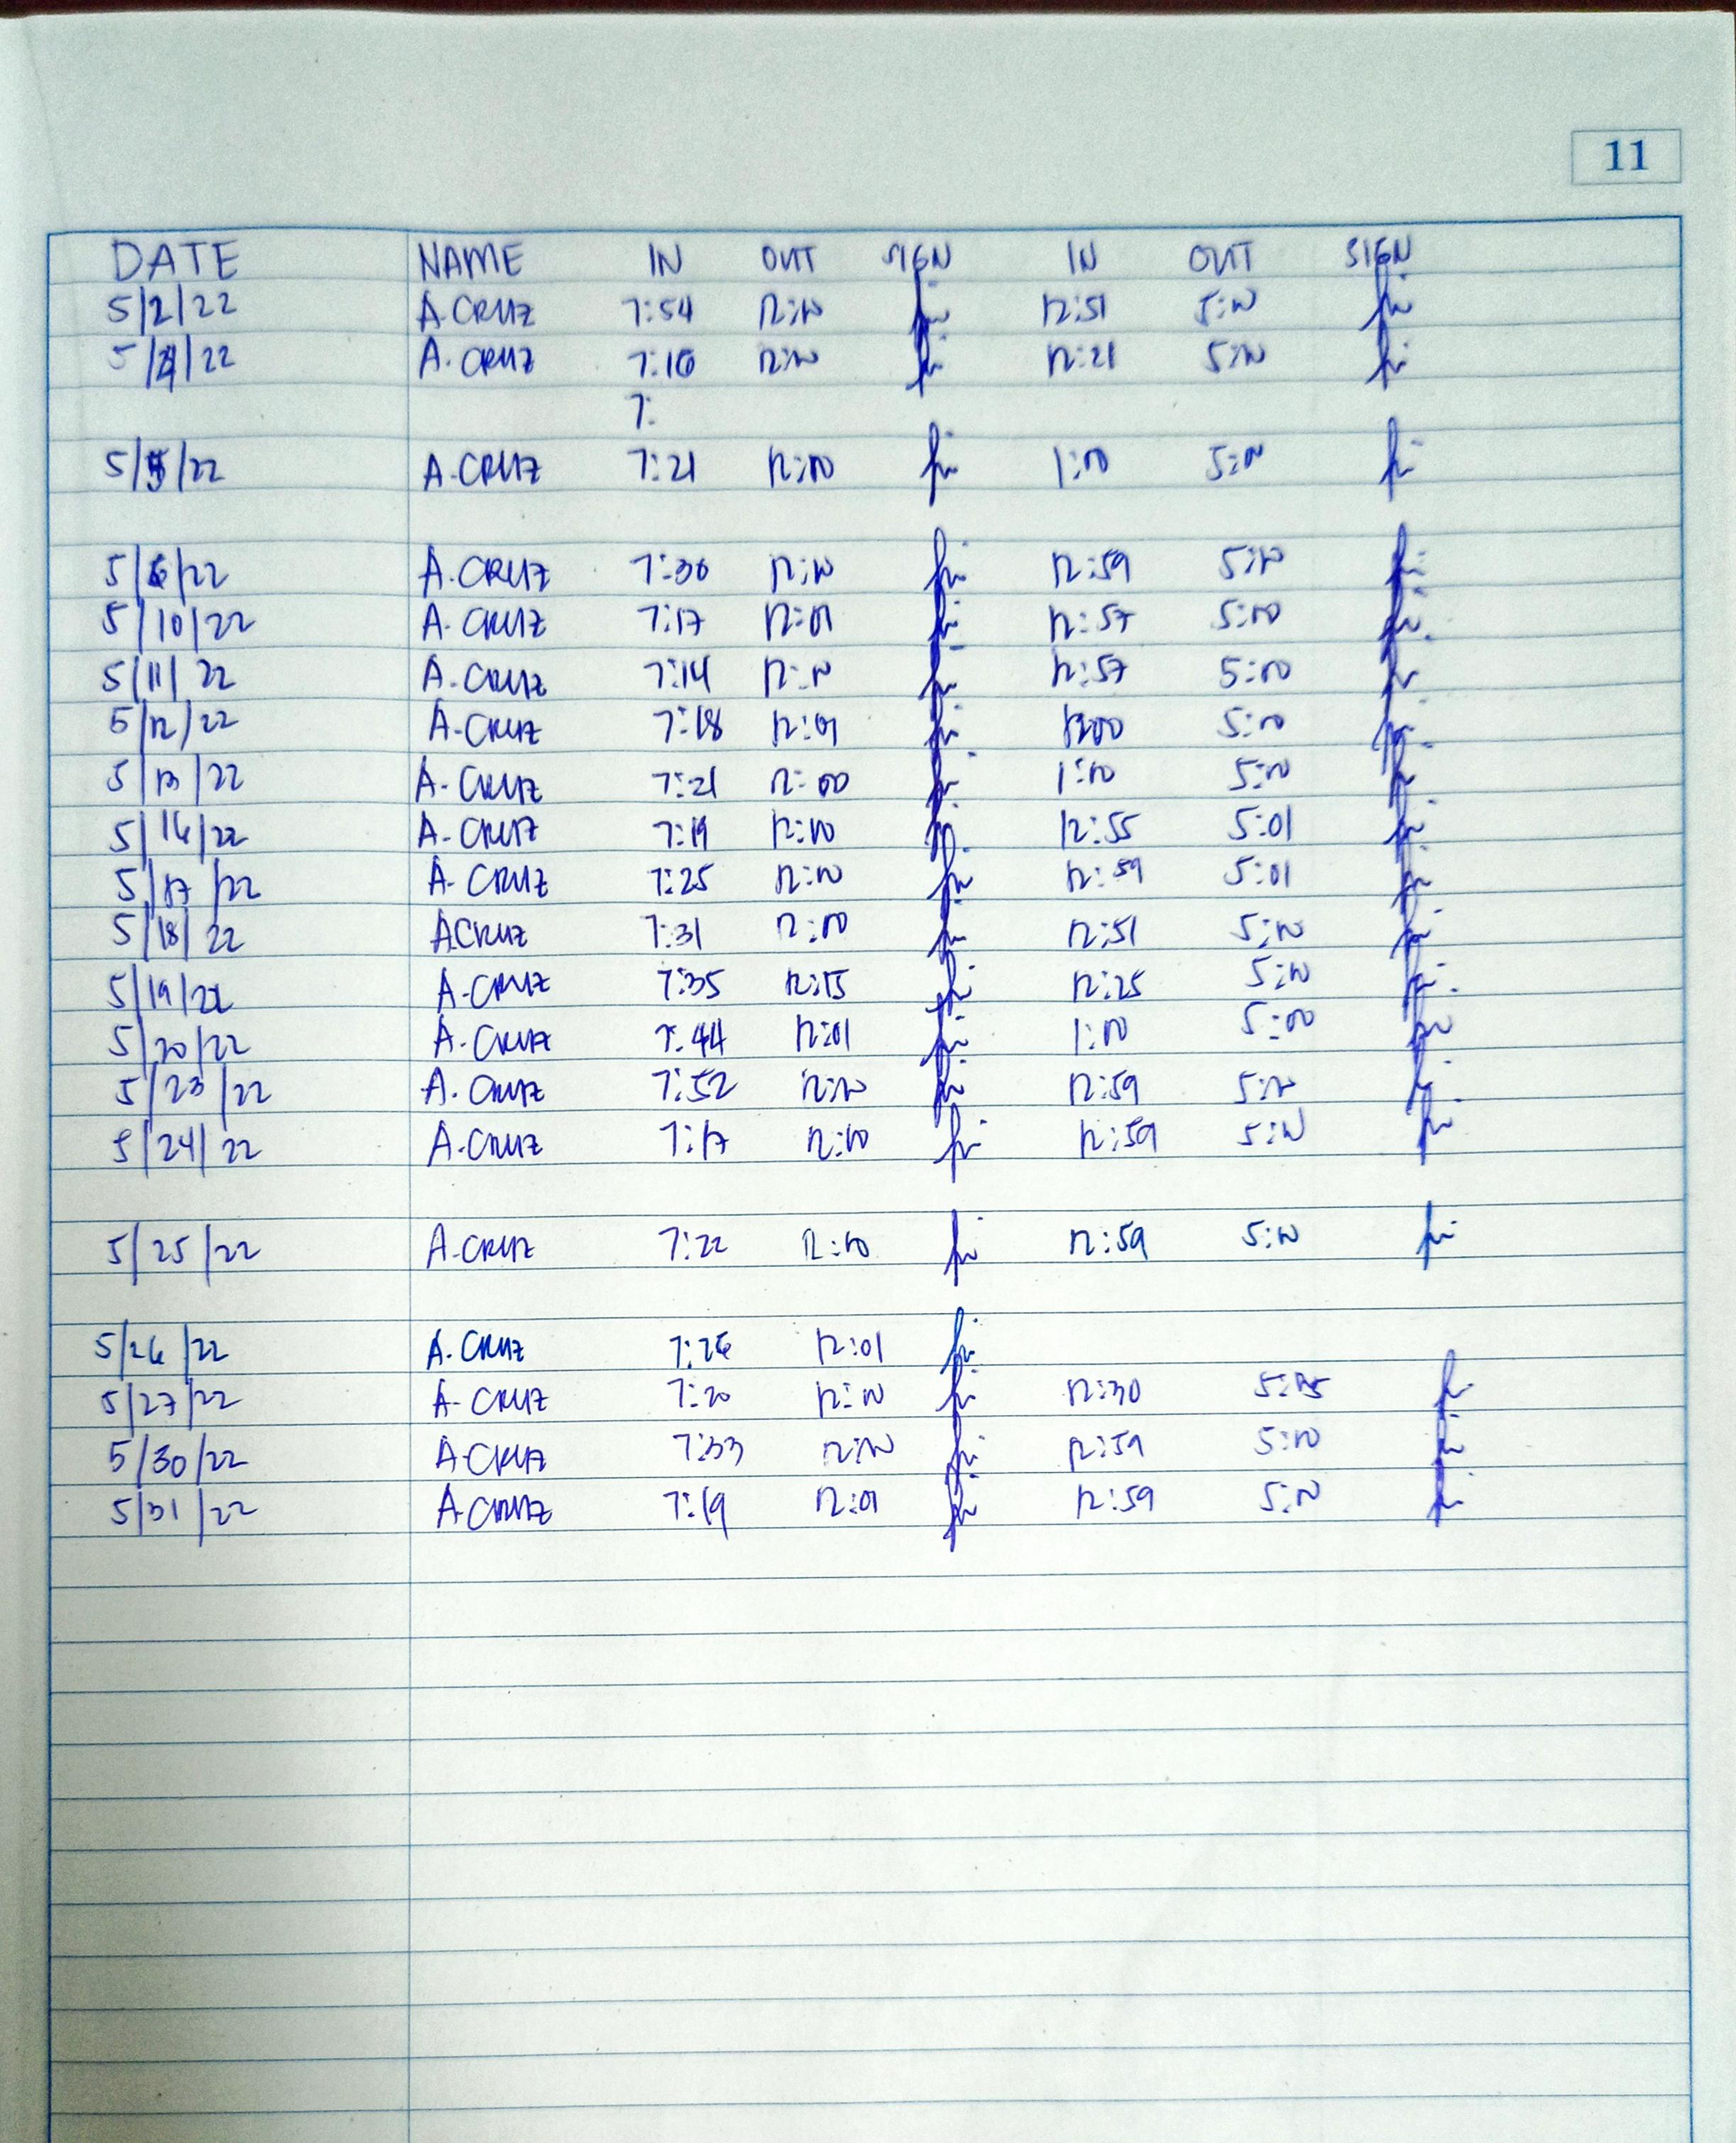 11
DATE NAME IN OUT SIGN IN OUT SIGN
5/2/22 A.CRUZ 7:54 12:00 12:51 5:00
5/4/22 A. CRUZ 7:16 12:00 12:21 5:00
7:
5/5/22 A.CRUZ 7:21 12:00 1:00 5:00
5/6/22 A.CRUZ 7:30 12:00 12:59 5:00
5/10/22 A. CRUZ 7:17 12:01 12:57 5:00
5/11/22 A.CRUZ 7:14 12:00 12:57 5:00
5/12/22 A-CRUZ 7:18 12:01 5:00
5/13/22 A- CRUZ 7:21 12:00 1:00 5:00
5/16/22 A- CRUZ 7:19 12:00 12:55 5:01
5/17/22 A- CRUZ 7:25 12:00 12:59 5:01
5/18/22 ACRUZ 7:31 12:00 12:51 5:00
5/19/22 A-CRUZ 7:35 12:15 12:25 5:00
5/20/22 A-CRUZ 7:44 12:01 1:00 5:00
5/23/22 A. CRUZ 7:52 12:00 12:59 5:00
5/24/22 A-CRUZ 7:17 12:00 12:59 5:00
5/25/22 A-CRUZ 7:22 12:00 12:59 5:00
5/26/22 A. CRUZ 7:26 12:01
5/27/22 A- CRUZ 7:20 12:00 12:30
5/30/22 A-CRUZ 7:33 12:00 12:59 5:00
5/31/22 A-CRUZ 7:19 12:01 12:59 5:00